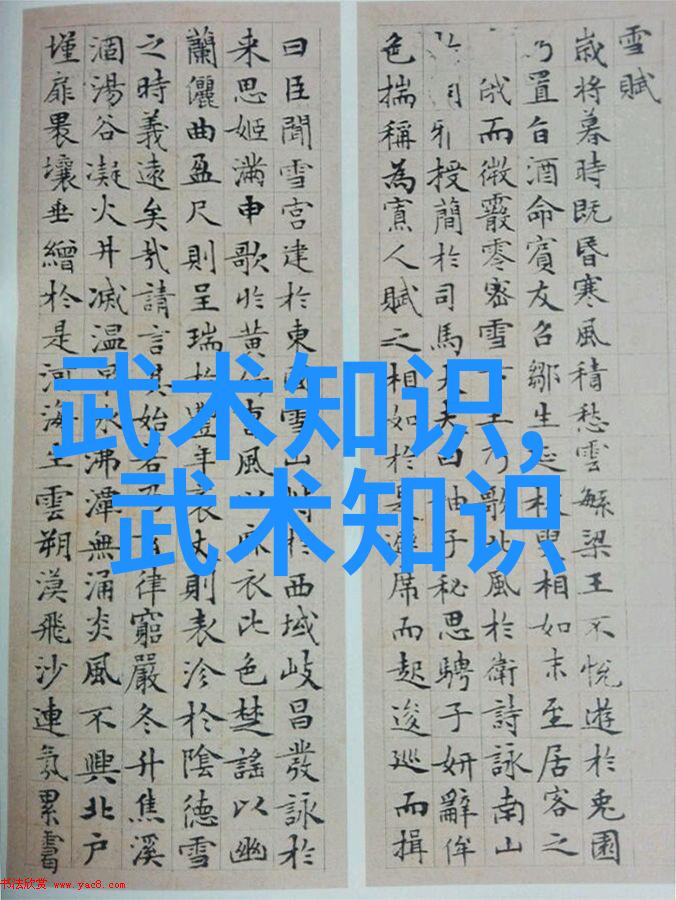 雪賦
歲将暮時既昏寒風積愁雲繁梁王不悅遊於兎園
乃置旨酒命賓友召鄒生延枚叟相如末至居客之
俄而微霰零密雪王乃歌北風於衛詩詠南山
雅授簡於司馬大夫曰抽子秘思騁子妍辭侔
色揣稱為寡人賦之相如於是避席而起逡巡而揖
曰臣聞雪宮建於東國雪山峙於西域岐昌發詠於
来思姬滿申歌於黃竹曹風以麻衣比色楚謠以幽
蘭儷曲盈尺則呈瑞於豐年袤丈則表沴於陰德雪
之時義遠矣哉請言其始若乃玄律窮嚴冬升焦溪
涸湯谷凝火井滅温泉冰沸潭無涌炎風不興北户
墐扉裸壤垂繒於是河海生雲朔漠飛沙連氛累靄
武术知识,
武术知识
书法欣赏 www.yac8.com